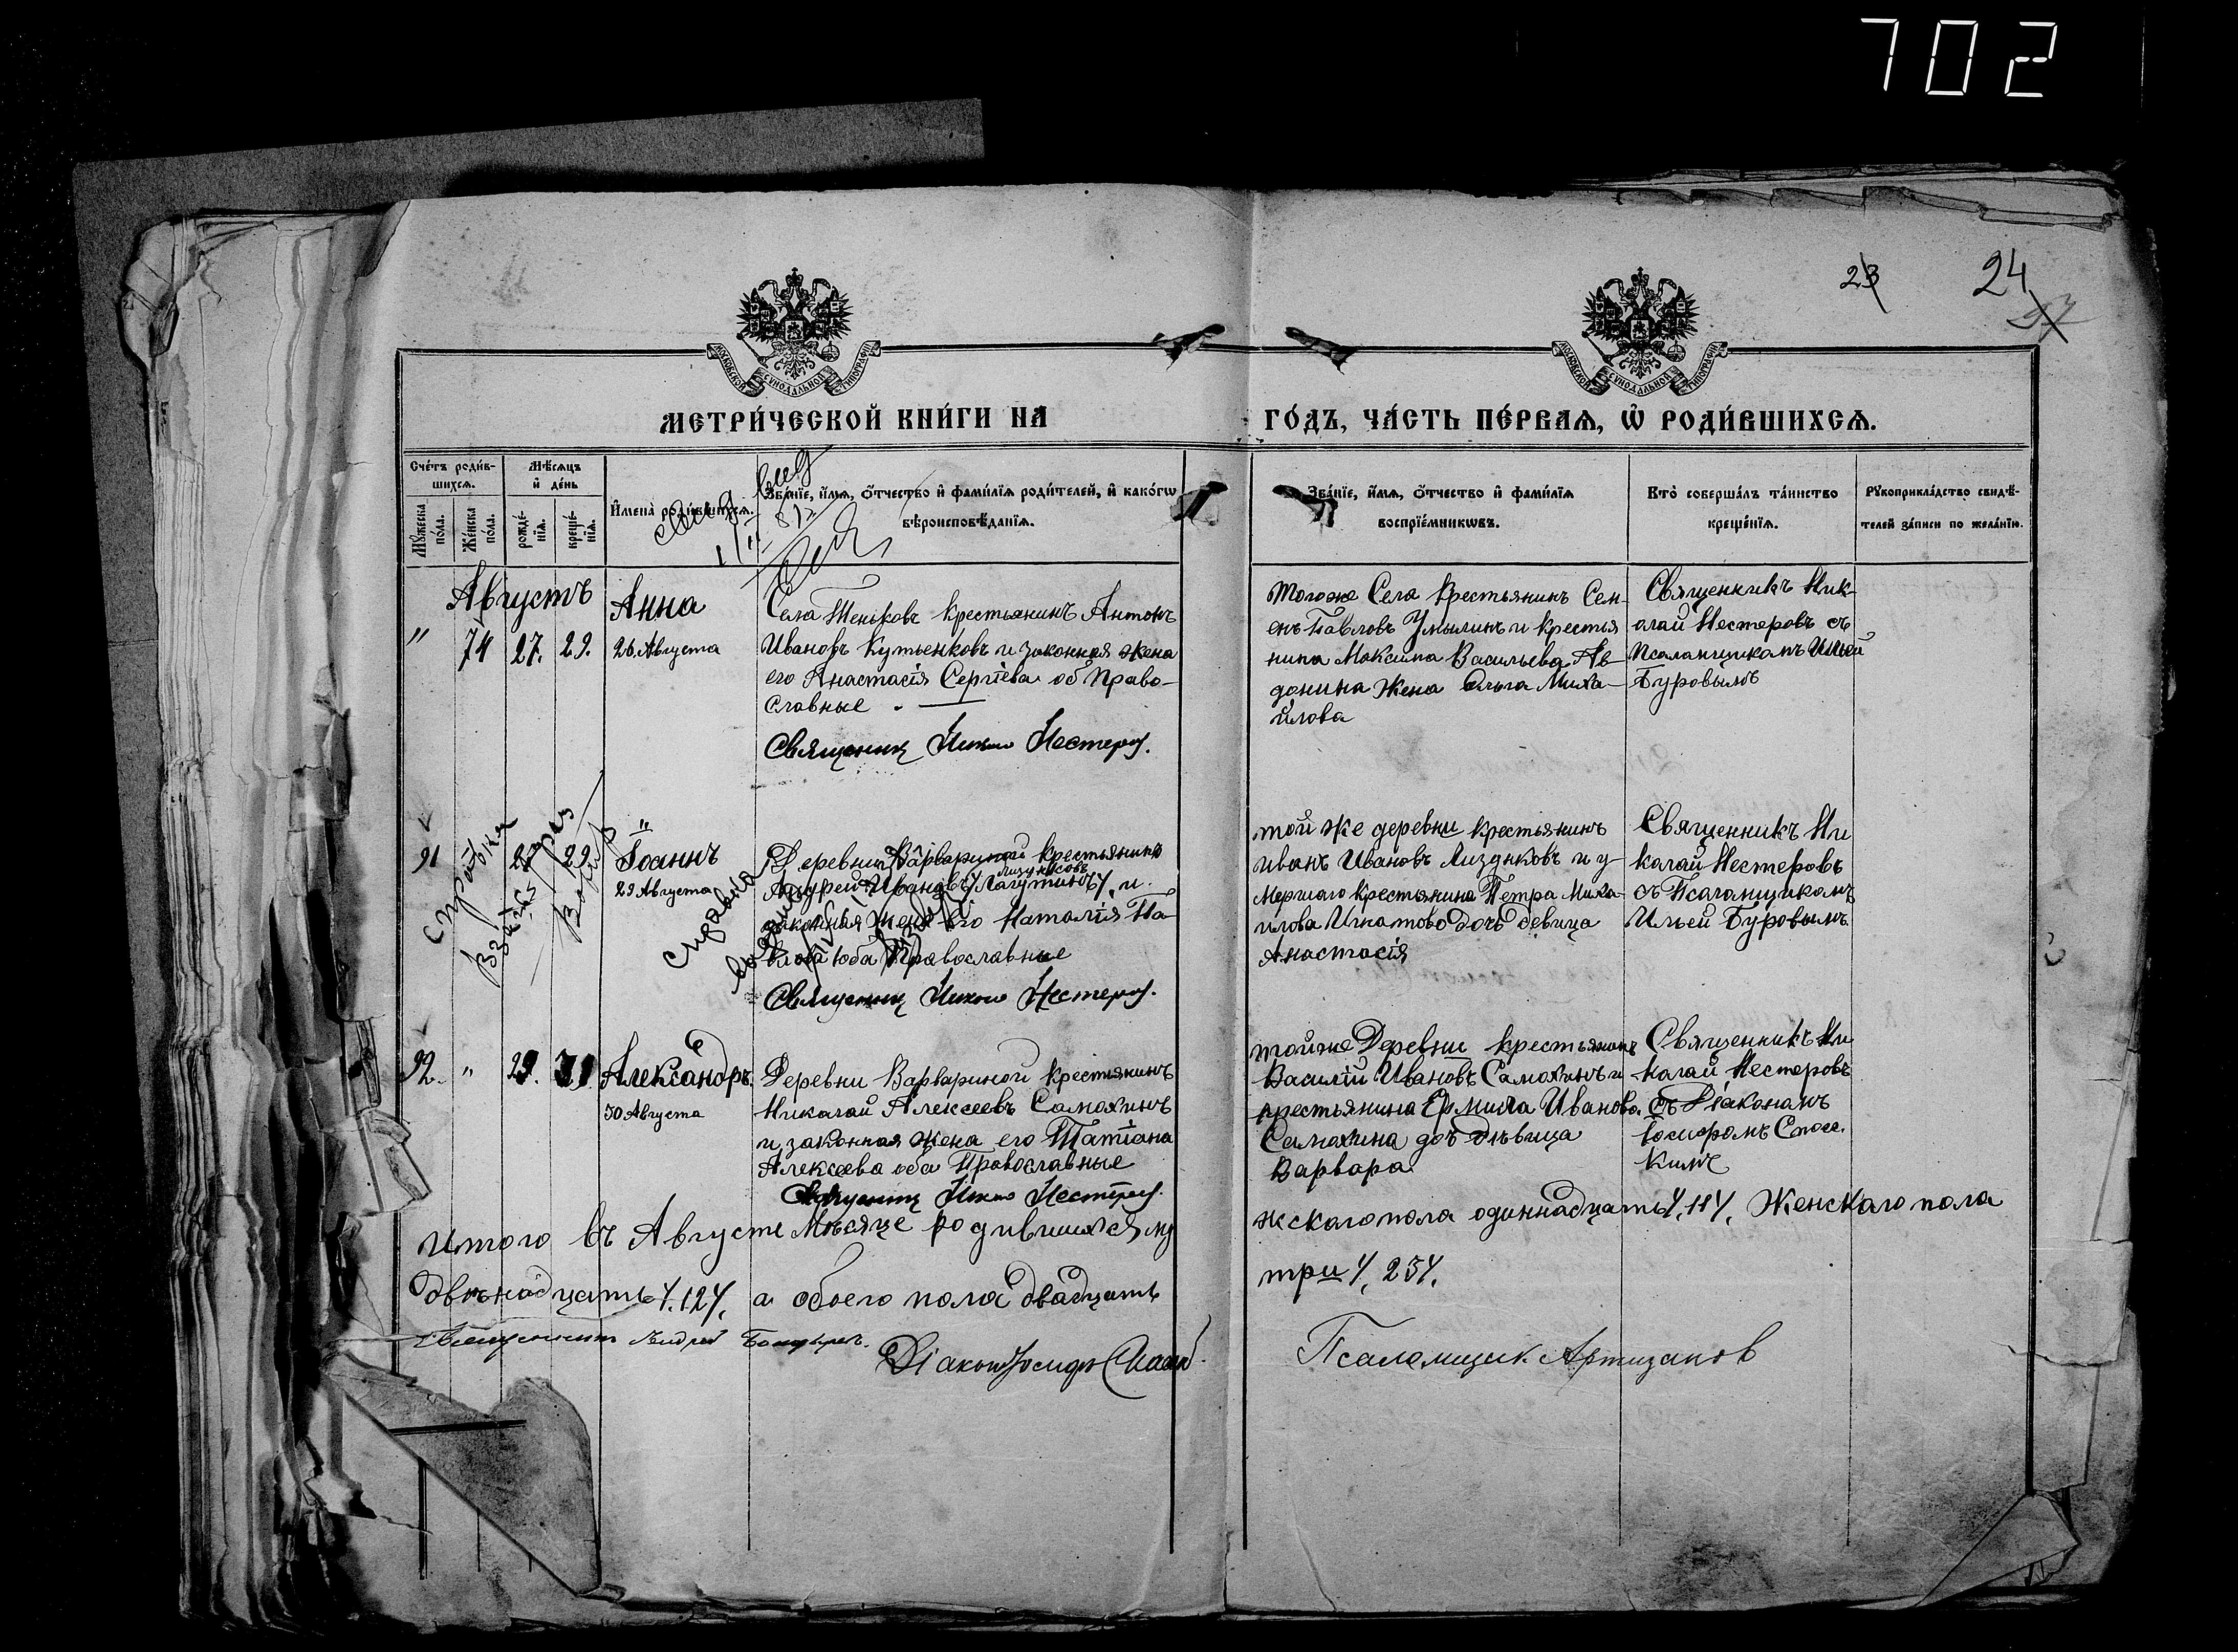 702
23
24
37
МОСКОВСКОЙ СУНОДАЛЬНОЙ ТИПОГРАФІИ
МОСКОВСКОЙ СУНОДАЛЬНОЙ ТИПОГРАФІИ
МЕТРИ́ЧЕСКОЙ КНИ́ГИ НА
ГО́ДЪ, ЧА́СТЬ ПЕ́РВАѦ, Ѡ҆ РОДИ́ВШИХСѦ.
Сче́тъ роди́в-
шихсѧ.
Мѹ́жеска по́ла.
Же́нска по́ла.
Мѣ́сѧцъ
и҆ де́нь
рожде́-
нїѧ.
креще́-
нїѧ.
И҆мена̀ роди́вшихсѧ.
Зва́нїе, и҆́мѧ, ѻ҆́тчество и҆ фами́лїѧ роди́телей, и҆ како́гѡ
вѣроисповѣ́данїѧ.
Зва́нїе, и҆́мѧ, ѻ҆́тчество и҆ фами́лїѧ
воспрїе́мникѡвъ.
Кто̀ соверша́лъ та́инство
креще́нїѧ.
Рѹкоприкла́дство свидѣ́-
телей за́писи по жела́нїю.
Августъ
" 74 27. 29.
Анна
26. Августа
Села Теньковъ крестьянинъ Антонъ
Ивановъ Кутьенковъ и законная жена
его Анастасія Сергіева об Право-
славные.
Священник Никол Нестеров.
Тогоже Села Крестьянинъ Сем-
енъ Павловъ Умылинъ и крестья
нина Максима Васильева Ав-
донина жена Ольга Миха-
йлова
Священникъ Ник-
олай Нестеровъ съ
Псаломщикомъ Ильей
Буровымъ
91 " 27 29
справка
справка
Іоаннъ
29 Августа
Деревни Варвариной крестьянинъ
Андрей Ивановъ Лагутинъ и
Лизунковъ
законная жена его Наталія Па-
влова оба Православные
Священник Никол Нестеров.
той же деревни крестьянинъ
Иванъ Ивановъ Лизунковъ и у-
мершаго крестьянина Петра Миха-
илова Игнатова дочь девица
Анастасія
Священникъ Ни
колай Нестеровъ
съ Псаломщикомъ
Ильей Буровымъ.
92. " 29. 31
Александръ.
30 Августа
Деревни Варвариной крестьянинъ
Николай Алексеевъ Самохинъ
и законная жена его Татіана
Алексеева оба Православные
Священник Никол Нестеров.
тойже Деревни крестьянинъ
Василій Ивановъ Самохинъ и
крестьянина Ермила Иванова
Самохина доч дѣвица
Варвара
Священникъ Ни
колай Нестеровъ
съ Діакономъ
Іосифомъ Спасс.
кимъ
Итого въ Августе Мѣсяце родившихся му
жскаго пола одиннадцать /. 11 /. Женскаго пола
двѣнадцать /. 12 /. а обоего пола двадцать
три /. 23 /.
Священник Андрей
Діакон Іосиф Спасск
Псаломщик Артизанов